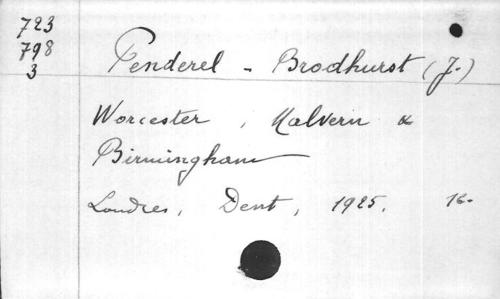 723
798
3
Penderel - Brodhurst (J.)
Worcester, Malvern &
Birmingham
Londres, Dent, 1925. 16.